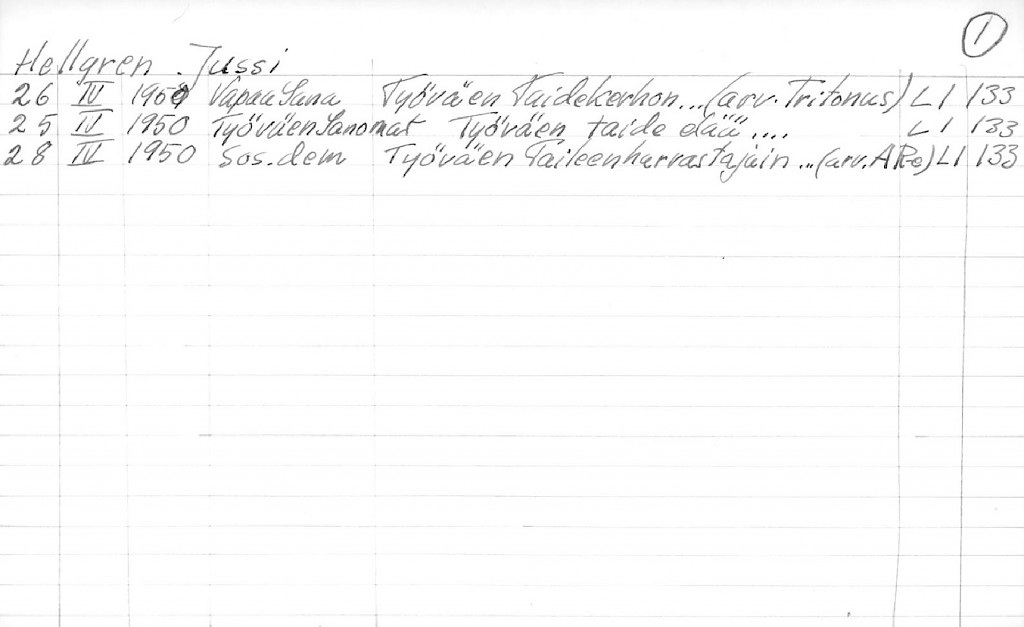 1
Hellgren Jussi
26 IV 1950 Vapaa Sana Työväen Taidekerhon...(arv. Tritonus) L1 133
25 IV 1950 Työväen Sanomat Työväen taide elää .... L1 133
28 IV 1950 Sos.dem Työväen Taiteenharrastajain ...(arv. ARe) L1 133